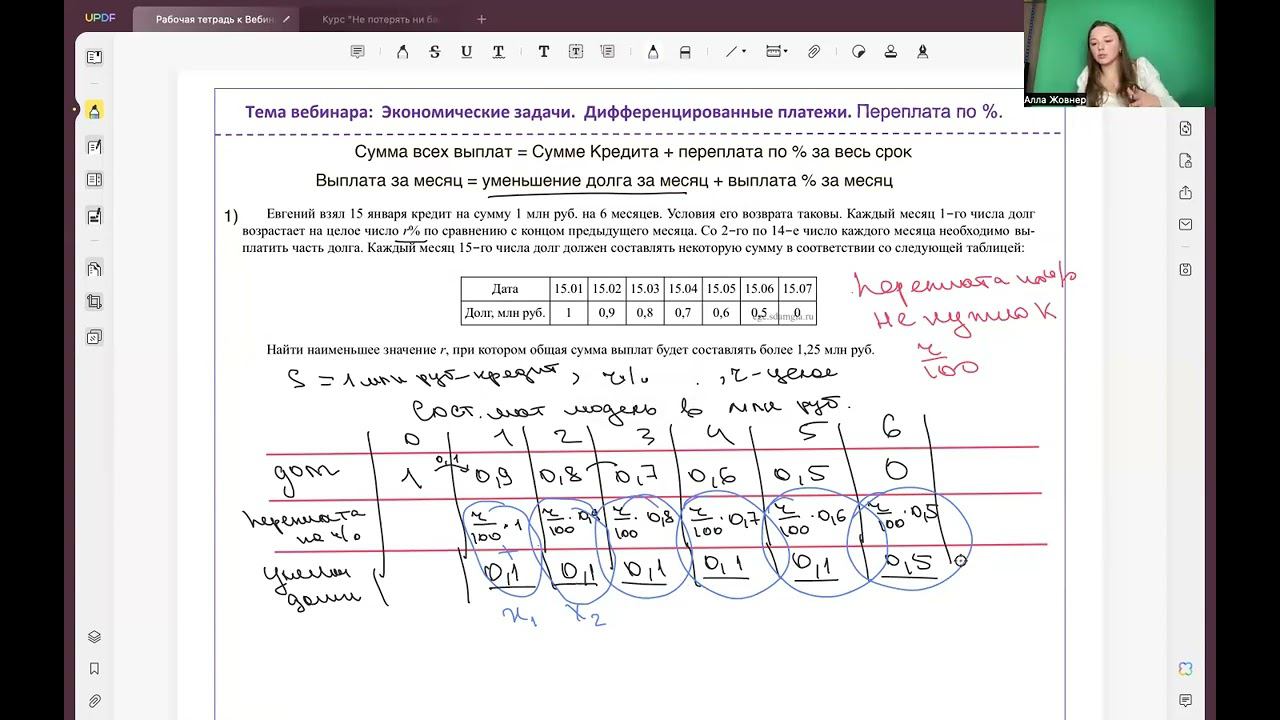 UPDF
Рабочая тетрадь к Вебин
Курс "Не потерять ни ба
Алла Жовнер
Тема вебинара: Экономические задачи. Дифференцированные платежи. Переплата по %.
Сумма всех выплат = Сумме Кредита + переплата по % за весь срок
Выплата за месяц = уменьшение долга за месяц + выплата % за месяц
1) Евгений взял 15 января кредит на сумму 1 млн руб. на 6 месяцев. Условия его возврата таковы. Каждый месяц 1-го числа долг
возрастает на целое число r% по сравнению с концом предыдущего месяца. Со 2-го по 14-е число каждого месяца необходимо вы-
платить часть долга. Каждый месяц 15-го числа долг должен составлять некоторую сумму в соответствии со следующей таблицей:
Дата 15.01 15.02 15.03 15.04 15.05 15.06 15.07
Долг, млн руб. 1 0,9 0,8 0,7 0,6 0,5 0
переплата
не нужно к
r/100
Найти наименьшее значение r, при котором общая сумма выплат будет составлять более 1,25 млн руб.
S = 1 млн руб - кредит, r% , r - целое
Сост. мат модель в млн руб.
0 1 2 3 4 5 6
долг 1 0,1 0,9 0,8 0,7 0,6 0,5 0
переплата
на % r/100 · 1 r/100 · 0,9 r/100 · 0,8 r/100 · 0,7 r/100 · 0,6 r/100 · 0,5
+
0,1 0,1 0,1 0,1 0,1 0,5
долга
x1 x2